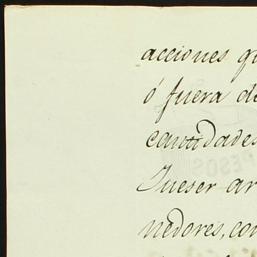 acciones qu
ó fuera de
cantidades
Jueser ar
nedores, con